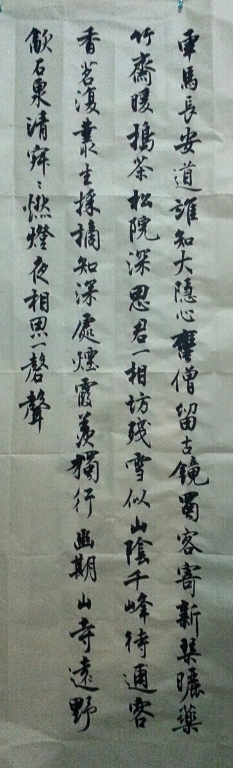 車馬長安道誰知大隱心蠻僧留古鏡蜀客寄新琴曬藥
竹齋暖搗茶松院深思君一相訪殘雪似山陰千峰待逋客
香茗復叢生採摘知深處煙霞羨獨行幽期山寺遠野
飯石泉清寂〻燃燈夜相思一磬聲